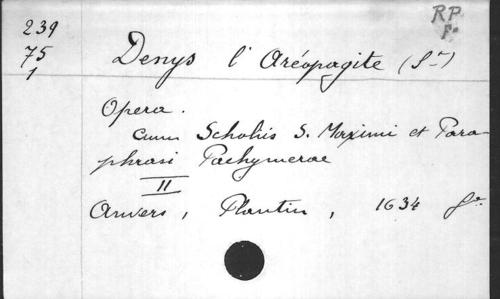 239
75
1
RP
F.
Denys l'Aréopagite (St)
Opera.
cum Scholiis S. Maximi et Para-
phrasi Pachymerae
II
Anvers, Plantin, 1634 fo.